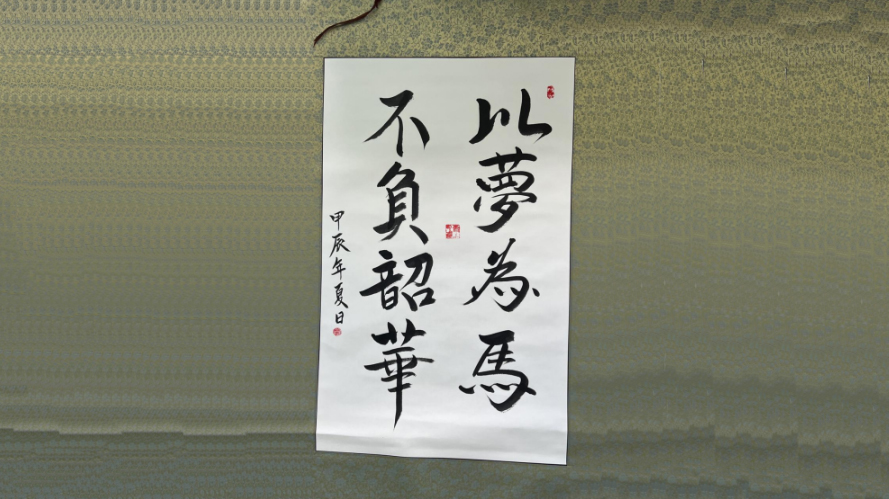 以夢為馬
不負韶華
甲辰年夏日